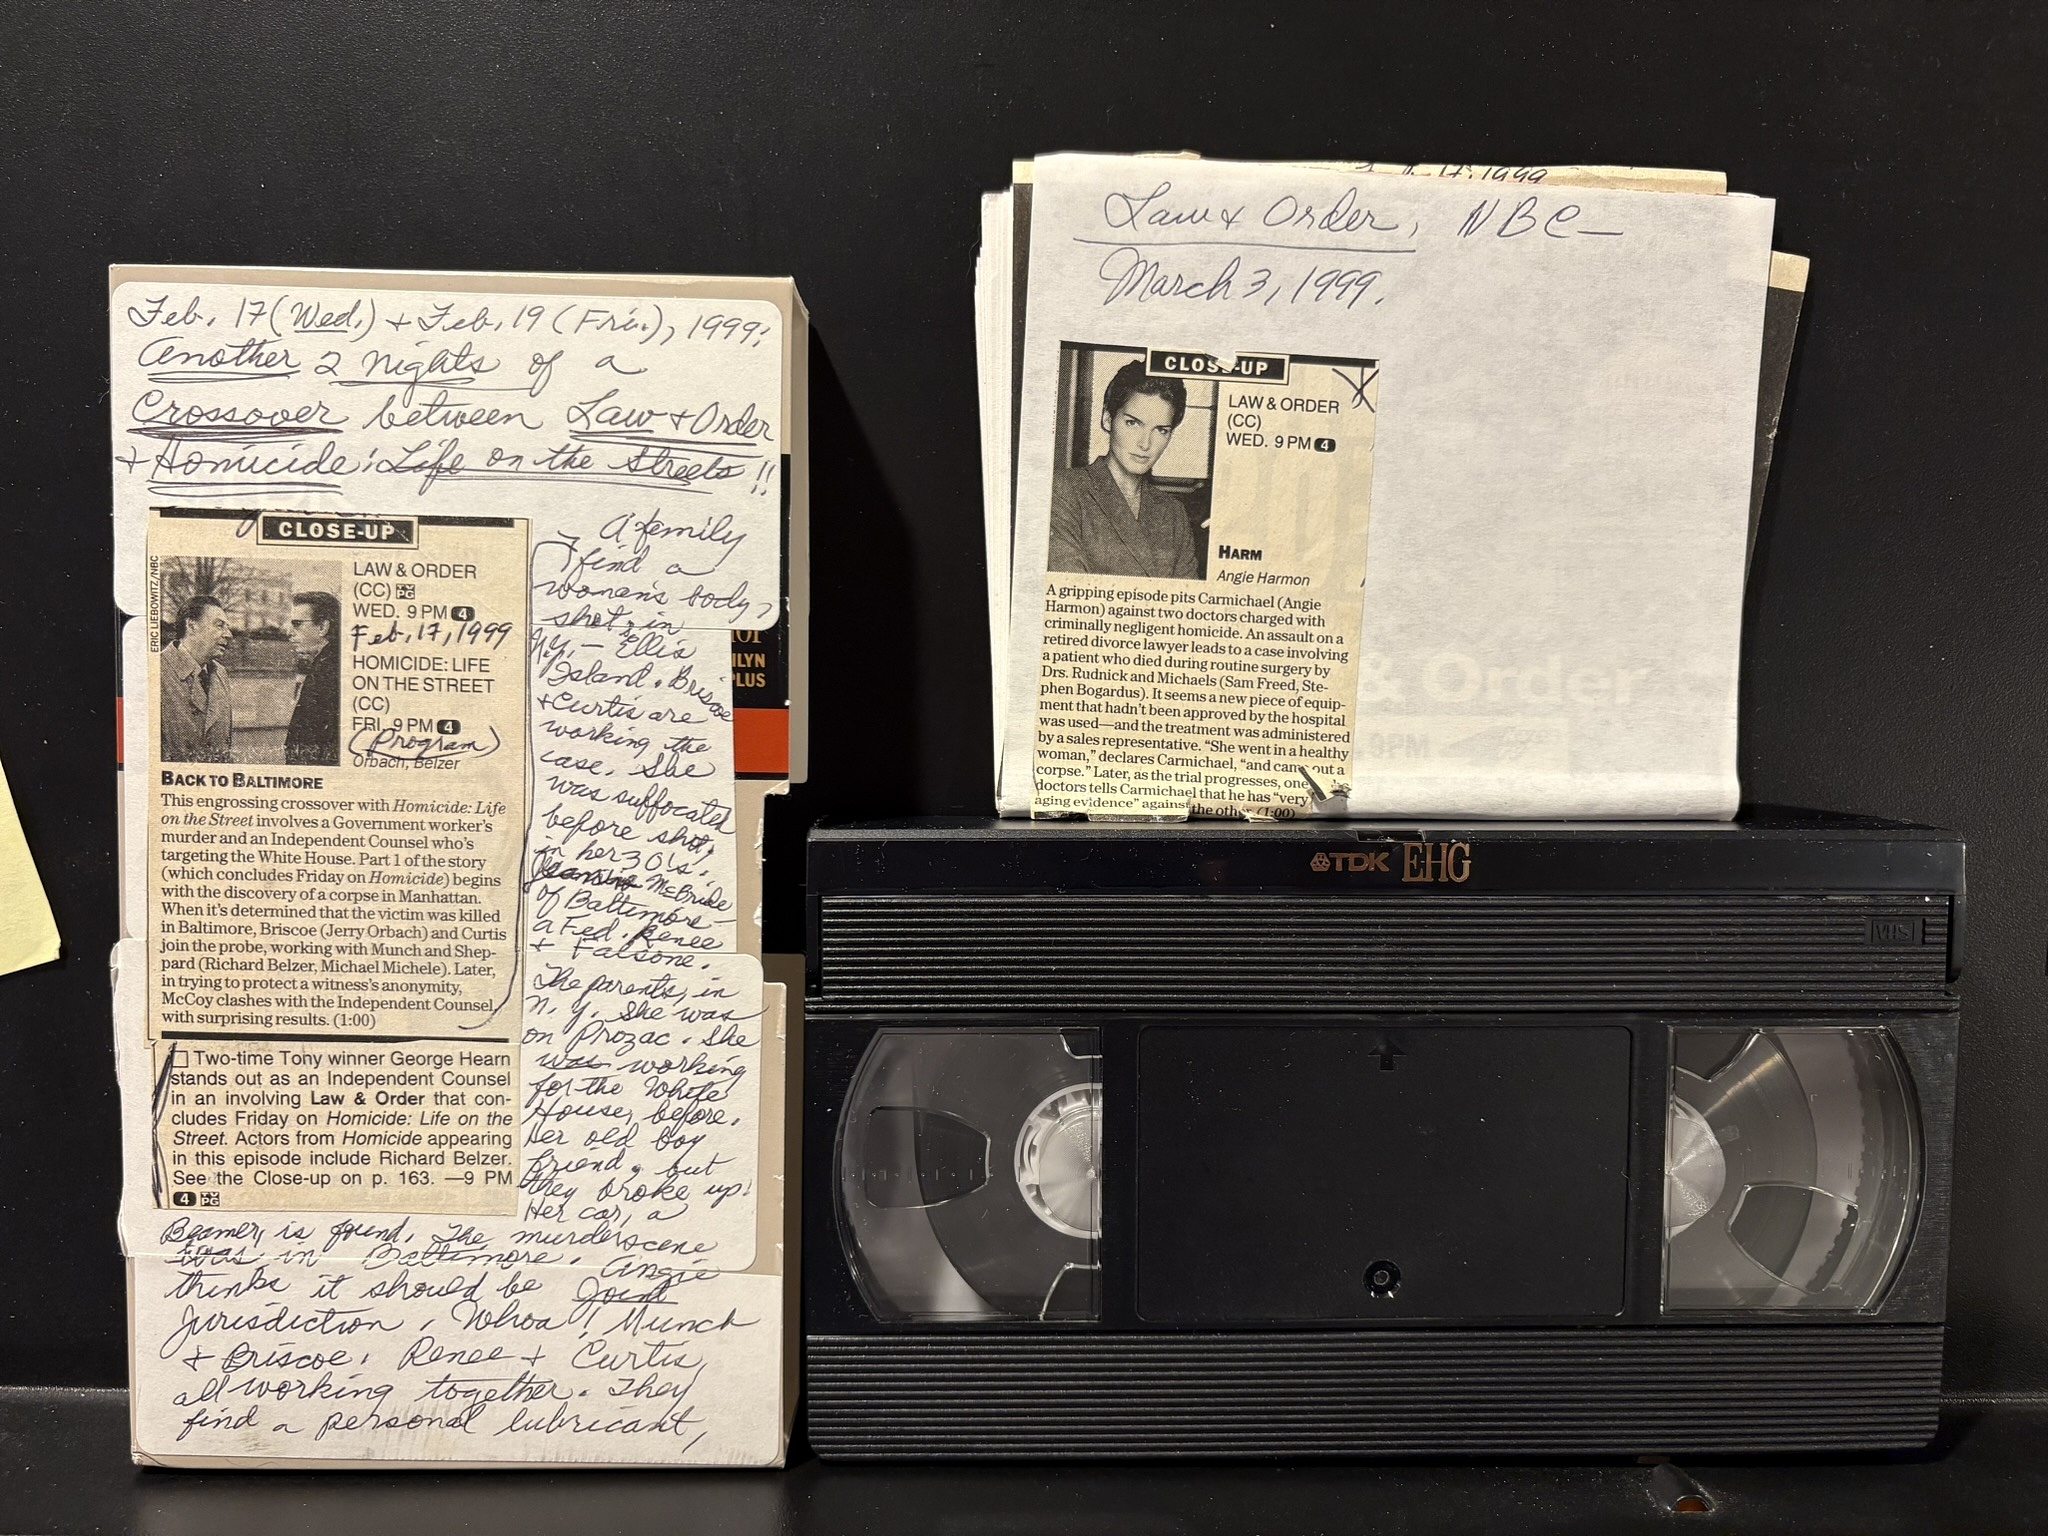 Feb. 17 (Wed.) + Feb. 19 (Fri.), 1999:
Another 2 nights of a
Crossover between Law + Order
+ Homicide: Life on the Streets!!
CLOSE-UP
ERIC LIEBOWITZ/NBC
LAW & ORDER
(CC) TV PG
WED. 9 PM 4
Feb. 17, 1999
HOMICIDE: LIFE
ON THE STREET
(CC)
FRI. 9 PM 4
(Program)
Orbach, Belzer
BACK TO BALTIMORE
This engrossing crossover with Homicide: Life
on the Street involves a Government worker's
murder and an Independent Counsel who's
targeting the White House. Part 1 of the story
(which concludes Friday on Homicide) begins
with the discovery of a corpse in Manhattan.
When it's determined that the victim was killed
in Baltimore, Briscoe (Jerry Orbach) and Curtis
join the probe, working with Munch and Shep-
pard (Richard Belzer, Michael Michele). Later,
in trying to protect a witness's anonymity,
McCoy clashes with the Independent Counsel,
with surprising results. (1:00)
Two-time Tony winner George Hearn
stands out as an Independent Counsel
in an involving Law & Order that con-
cludes Friday on Homicide: Life on the
Street. Actors from Homicide appearing
in this episode include Richard Belzer.
See the Close-up on p. 163. —9 PM
4 TV PG
A family
find a
woman's body,
shot, in
N.Y. — Ellis
Island. Briscoe
+ Curtis are
working the
case. She
was suffocated
before shot,
in her 30's.
McBride
of Baltimore —
a Fed. Renee
+ Falsone.
The parents, in
N.Y. She was
on Prozac. She
was working
for the White
House, before.
Her old boy
friend, but
they broke up.
Her car, a
Beamer, is found. The murder scene
was in Baltimore. Angie
thinks it should be Joint
Jurisdiction. Whoa! Munch
+ Briscoe. Renee + Curtis,
all working together. They
find a personal lubricant,
ILYN
PLUS
17, 1999
Law + Order, NBC —
March 3, 1999.
CLOSE-UP
LAW & ORDER
(CC)
WED. 9 PM 4
HARM
Angie Harmon
A gripping episode pits Carmichael (Angie
Harmon) against two doctors charged with
criminally negligent homicide. An assault on a
retired divorce lawyer leads to a case involving
a patient who died during routine surgery by
Drs. Rudnick and Michaels (Sam Freed, Ste-
phen Bogardus). It seems a new piece of equip-
ment that hadn't been approved by the hospital
was used—and the treatment was administered
by a sales representative. "She went in a healthy
woman," declares Carmichael, "and came out a
corpse." Later, as the trial progresses, one
doctors tells Carmichael that he has "very
aging evidence" against the other. (1:00)
& Order
9PM
TDK EHG
VHS